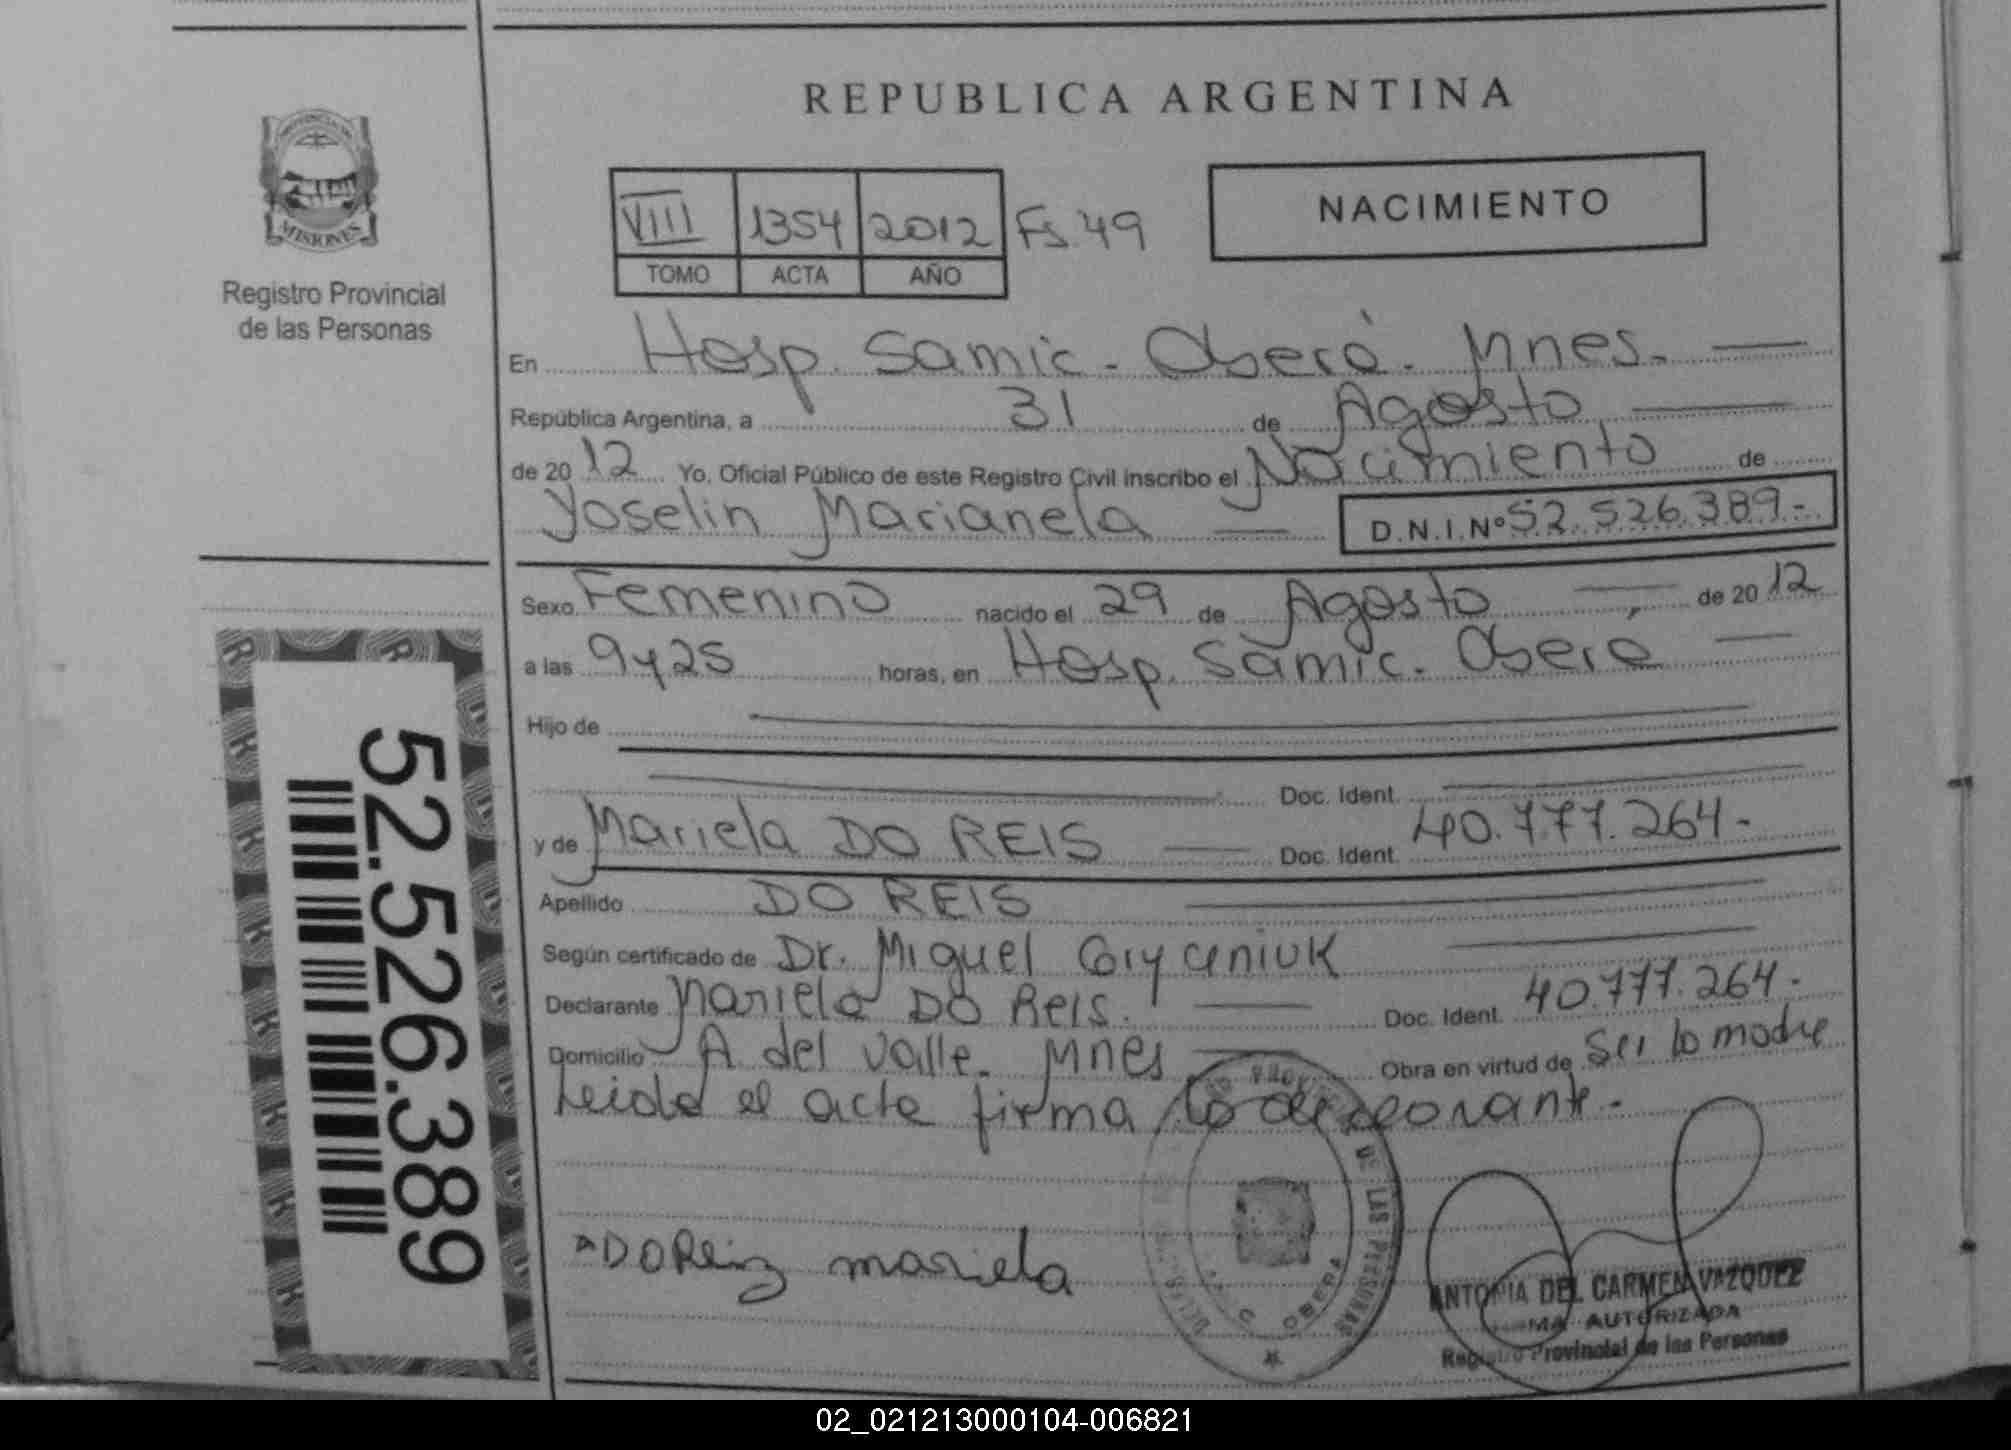 REPUBLICA ARGENTINA
PROVINCIA DE
MISIONES
Registro Provincial
de las Personas
VIII 1354 2012 Fs. 49
TOMO ACTA AÑO
NACIMIENTO
En Hosp. Samic - Oberá - Mnes.
República Argentina, a 31 de Agosto
de 2012 Yo, Oficial Público de este Registro Civil inscribo el Nacimiento de
Yoselin Marianela D.N.I.Nº 52.526.389.-
Sexo Femenino nacido el 29 de Agosto de 2012
a las 9y25 horas, en Hosp. Samic. Oberá
Hijo de
Doc. Ident.
y de Mariela DO REIS Doc. Ident. 40.777.264.-
Apellido DO REIS
Según certificado de Dr. Miguel
Declarante Mariela DO Reis. Doc. Ident. 40.777.264.-
Domicilio A. del Valle. Mnes Obra en virtud de ser la madre
Leida el acta firma la declarante.-
DO Reiz mariela
DE LAS PERSONAS
OBERA
ANTONIA DEL CARMEN VAZQUEZ
AUTORIZADA
Registro Provincial de las Personas
52.526.389
02_021213000104-006821